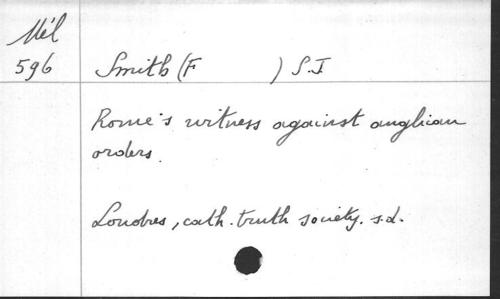 Mél
596 Smith (F ) S.I
Rome's witness against anglican
orders.
Londres, cath. truth society. s.d.